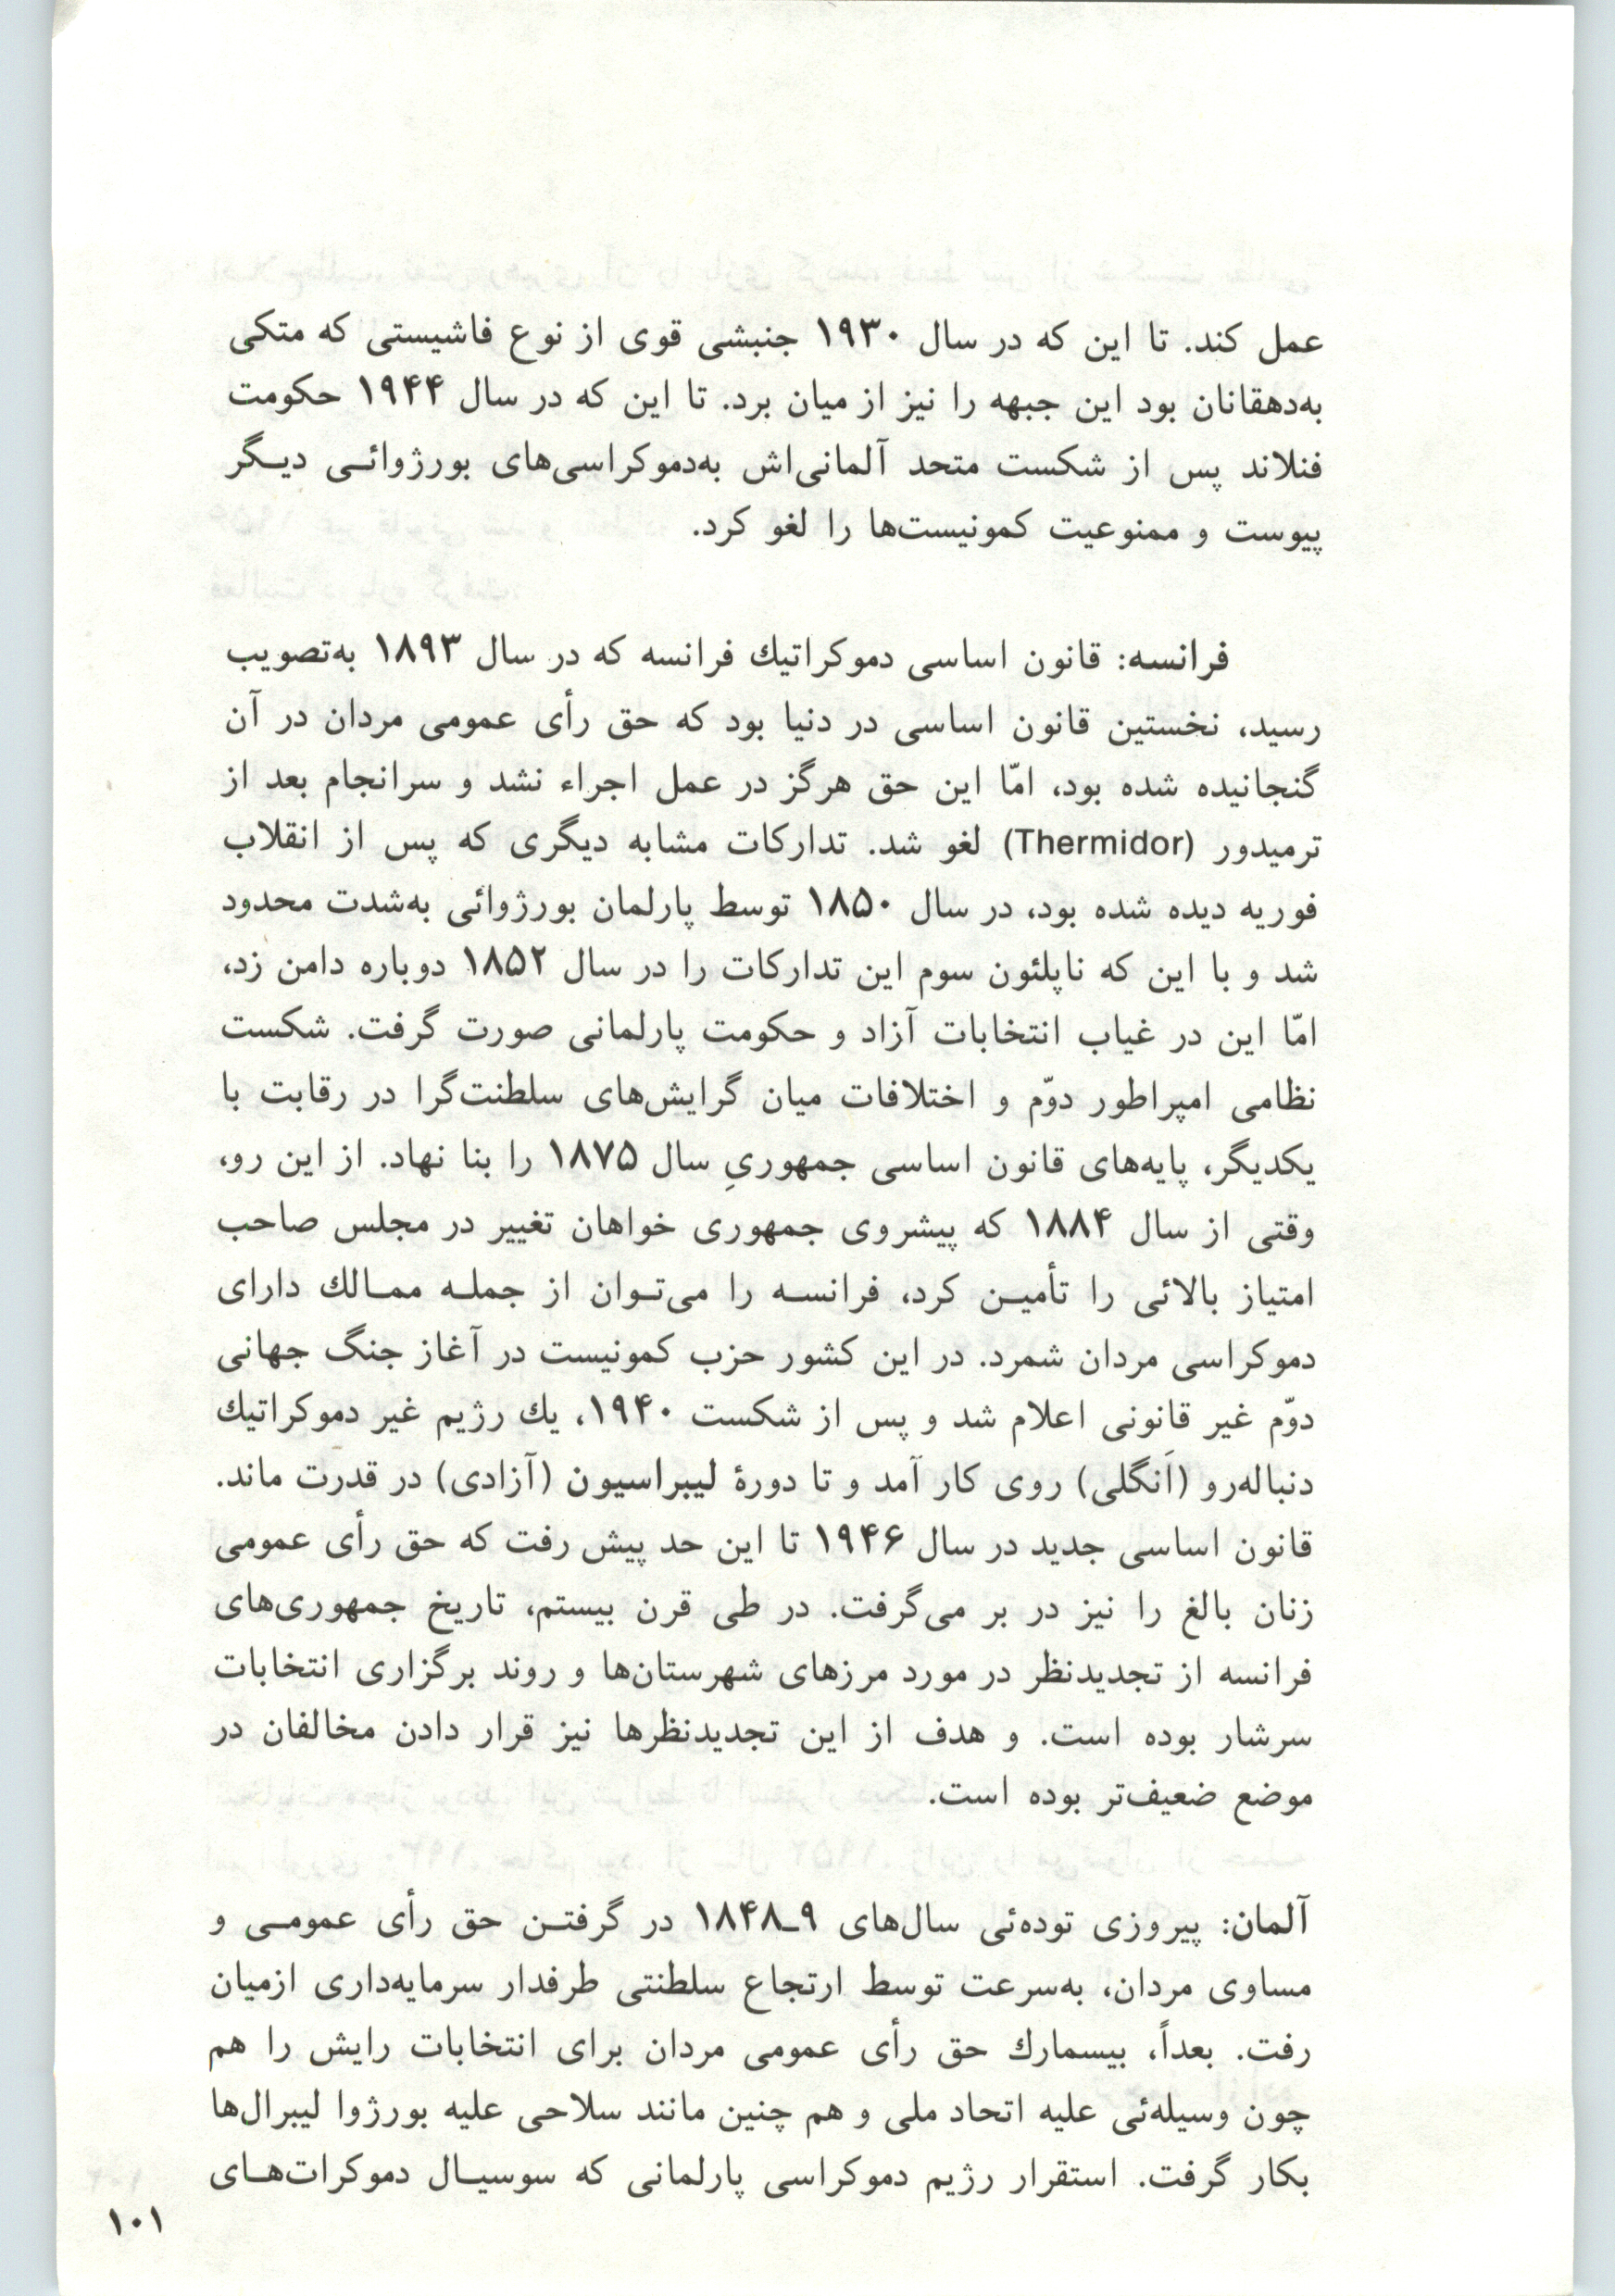 عمل کند. تا این که در سال ۱۹۳۰ جنبشی قوی از نوع فاشیستی که متکی
به‌دهقانان بود این جبهه را نیز از میان برد. تا این که در سال ۱۹۴۴ حکومت
فنلاند پس از شکست متحد آلمانی‌اش به‌دموکراسی‌های بورژوائی دیگر
پیوست و ممنوعیت کمونیست‌ها را لغو کرد.
فرانسه: قانون اساسی دموکراتیك فرانسه که در سال ۱۸۹۳ به‌تصویب
رسید، نخستین قانون اساسی در دنیا بود که حق رأی عمومی مردان در آن
گنجانیده شده بود، امّا این حق هرگز در عمل اجراء نشد و سرانجام بعد از
ترمیدور (Thermidor) لغو شد. تدارکات مشابه دیگری که پس از انقلاب
فوریه دیده شده بود، در سال ۱۸۵۰ توسط پارلمان بورژوائی به‌شدت محدود
شد و با این که ناپلئون سوم این تدارکات را در سال ۱۸۵۲ دوباره دامن زد،
امّا این در غیاب انتخابات آزاد و حکومت پارلمانی صورت گرفت. شکست
نظامی امپراطور دوّم و اختلافات میان گرایش‌های سلطنت‌گرا در رقابت با
یکدیگر، پایه‌های قانون اساسی جمهوریِ سال ۱۸۷۵ را بنا نهاد. از این رو،
وقتی از سال ۱۸۸۴ که پیشروی جمهوری خواهان تغییر در مجلس صاحب
امتیاز بالائی را تأمین کرد، فرانسه را می‌توان از جمله ممالك دارای
دموکراسی مردان شمرد. در این کشور حزب کمونیست در آغاز جنگ جهانی
دوّم غیر قانونی اعلام شد و پس از شکست ۱۹۴۰، یك رژیم غیر دموکراتیك
دنباله‌رو (اَنگلی) روی کار آمد و تا دورهٔ لیبراسیون (آزادی) در قدرت ماند.
قانون اساسی جدید در سال ۱۹۴۶ تا این حد پیش رفت که حق رأی عمومی
زنان بالغ را نیز در بر می‌گرفت. در طی قرن بیستم، تاریخ جمهوری‌های
فرانسه از تجدیدنظر در مورد مرزهای شهرستان‌ها و روند برگزاری انتخابات
سرشار بوده است. و هدف از این تجدیدنظرها نیز قرار دادن مخالفان در
موضع ضعیف‌تر بوده است.
آلمان: پیروزی توده‌ئی سال‌های ۹ـ۱۸۴۸ در گرفتن حق رأی عمومی و
مساوی مردان، به‌سرعت توسط ارتجاع سلطنتی طرفدار سرمایه‌داری ازمیان
رفت. بعداً، بیسمارك حق رأی عمومی مردان برای انتخابات رایش را هم
چون وسیله‌ئی علیه اتحاد ملی و هم چنین مانند سلاحی علیه بورژوا لیبرال‌ها
بکار گرفت. استقرار رژیم دموکراسی پارلمانی که سوسیال دموکرات‌های
۱۰۱